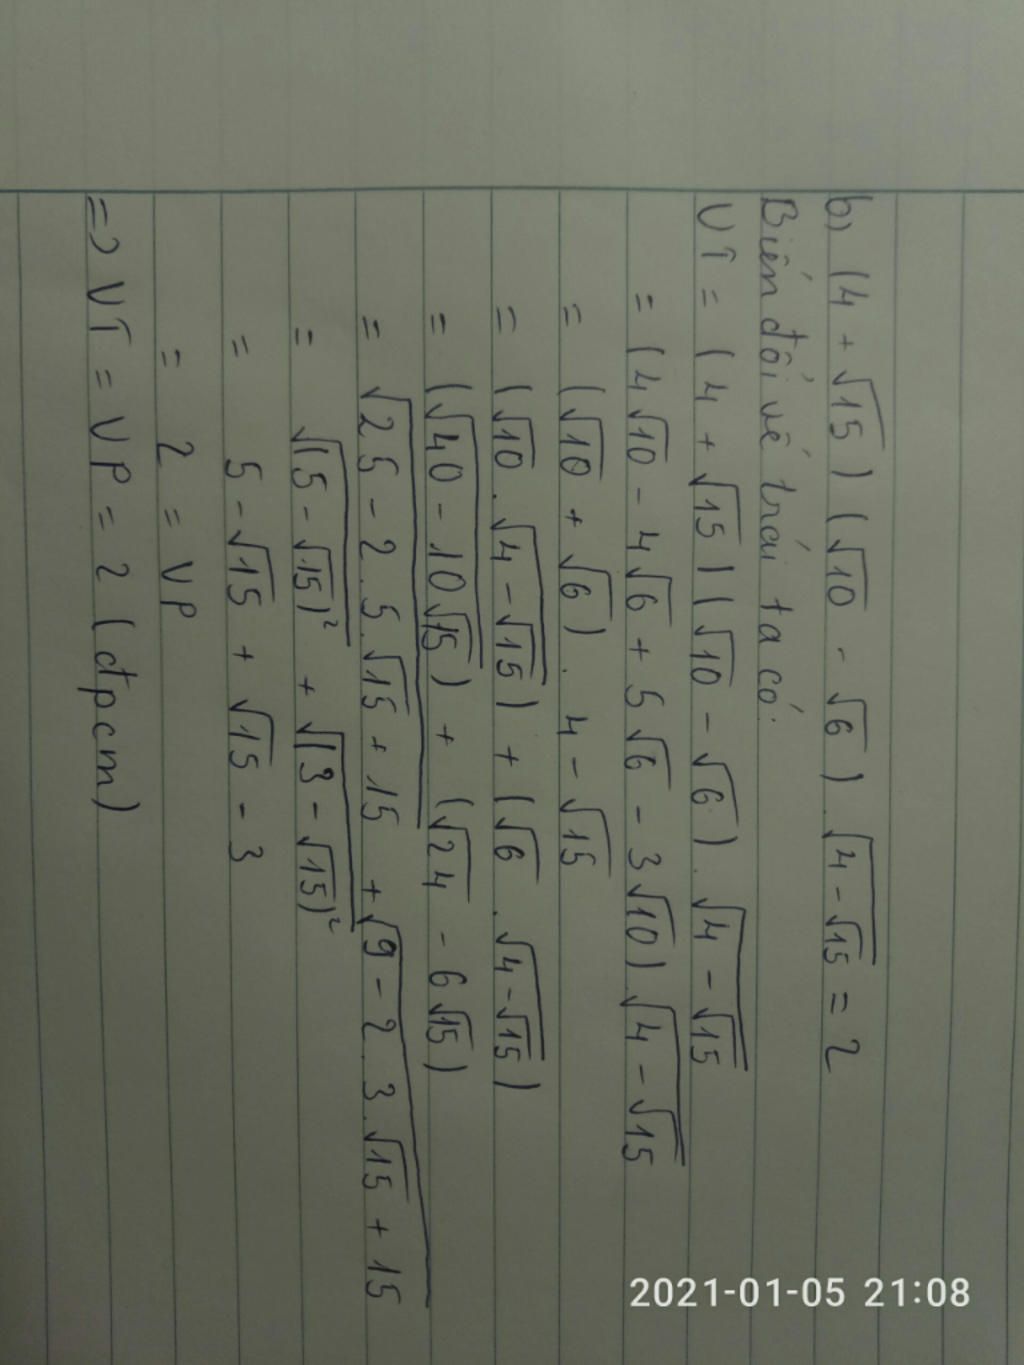 b) (4 + √15) (√10 - √6) . √(4 - √15) = 2
Biến đổi vế trái ta có:
VT = (4 + √15) (√10 - √6) . √(4 - √15)
= (4√10 - 4√6 + 5√6 - 3√10) √(4 - √15)
= (√10 + √6) . 4 - √15
= (√10 . √(4 - √15)) + (√6 . √(4 - √15))
= (√(40 - 10√15)) + (√24 - 6√15)
= √(25 - 2.5.√15 + 15) + √(9 - 2.3.√15 + 15)
= √(5 - √15)² + √(3 - √15)²
= 5 - √15 + √15 - 3
= 2 = VP
=> VT = VP = 2 (đpcm)
2021-01-05 21:08